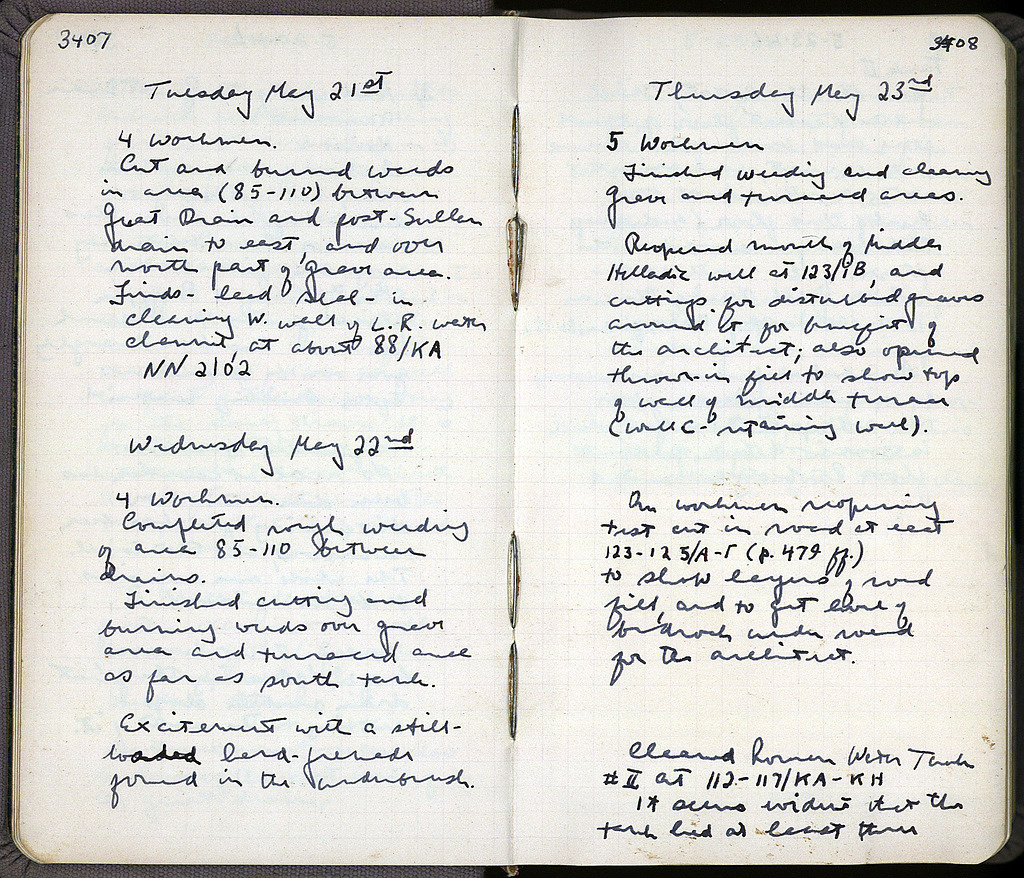 3407
Tuesday May 21st
4 workmen.
Cut and burned weeds
in area (85-110) between
Great Drain and post-Sullan
drain to east, and over
north part of grave area.
Finds - lead seal - in
cleaning W. wall of L. R. water
channel, at about 88/KA
NN 2102
Wednesday May 22nd
4 workmen.
Completed rough weeding
of area 85-110 between
drains.
Finished cutting and
burning weeds over grave
area and terraced area
as far as south tank.
Excitement with a still-
loaded hand-grenade
found in the underbrush.
3408
Thursday May 23rd
5 workmen
Finished weeding and cleaning
grave and terraced areas.
Reopened mouth of Middle
Helladic well at 123/IB, and
cuttings for disturbed graves
around it, for benefit of
the architect; also opened
thrown-in fill to show top
of wall of middle terrace
(wall C - retaining wall).
One workman reopening
test cut in road at east
123-125/A-Γ (p. 479 ff.)
to show layers of road
fill, and to get level of
bedrock under road
for the architect.
Cleaned Roman Water Tank
# II at 112-117/KA-KH
It seems evident that the
tank had at least three